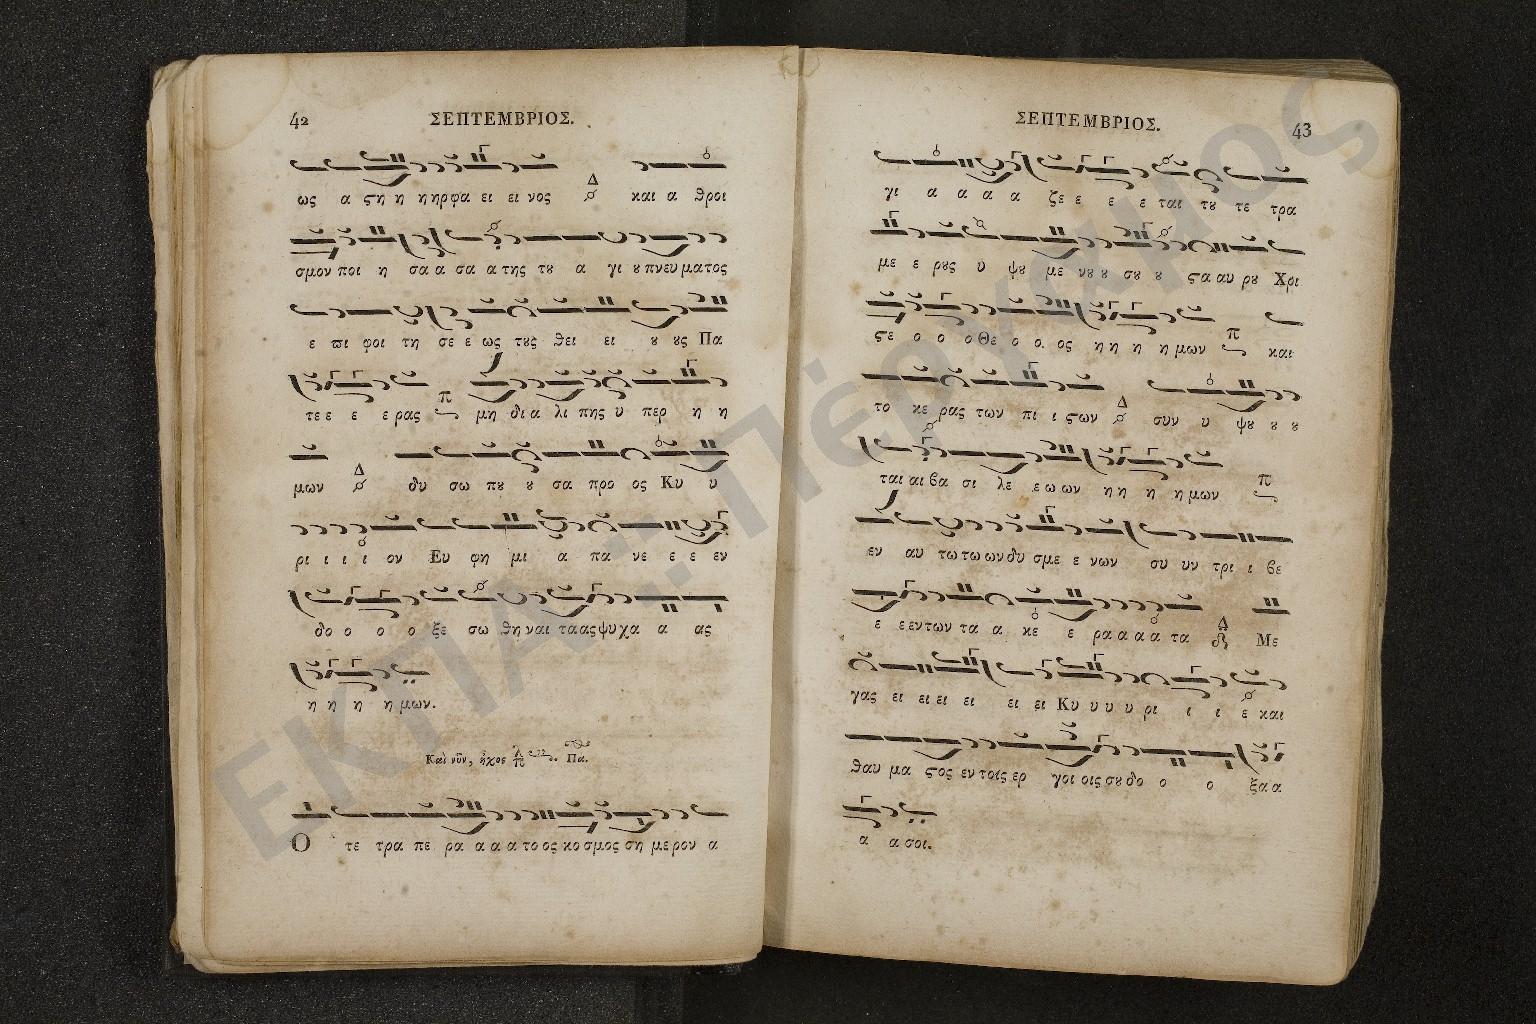 42
ΣΕΠΤΕΜΒΡΙΟΣ.
ως α ϛη η ηηρφα ει ει νος Δ και α θροι
σμον ποι η σα α σα α της τȣ α γι ȣ πνευ ματος
ε πι φοι τη σε ε ως τȣς θει ει ȣ ȣς Πα
τε ε ε ε ρας π μη δι α λι πης υ περ η η
μων Δ δυ σω πȣ ȣ σα προ ος Κυ υ
ρι ι ι ι ον Ευ φη μι α πα νε ε ε εν
δο ο ο ο ξε σω θη ναι τα ας ψυ χα α ας
η η η η μων.
Καὶ νῦν, ἦχος Πα.
Ο τε τρα πε ρα α α α το ος κο σμος ση με ρον α
ΣΕΠΤΕΜΒΡΙΟΣ.
43
γι α α α α ζε ε ε ε ται τȣ τε τρα
με ε ρȣς υ ψȣ με νȣ ȣ σȣ ȣ ϛα αυ ρȣ Χρι
ϛε ο ο ο Θε ο ο. ος η η η η μων π και
το κε ρας των πι ι ϛων Δ συν υ ψȣ ȣ ȣ
ται αι βα σι λε ε ω ων η η η η μων π
εν αυ τω τω ων δυ σμε ε νων συ υν τρι ι βε
ε ε εν των τα α κε ε ρα α α α τα Δ Με
γας ει ει ει ει ει ει Κυ υ υ υ ρι ι ι ε και
θαυ μα ϛος εν τοις ερ γοι οις σȣ δο ο ο ξα α
α α σοι.
ΕΚΠΑ
Πέργαμος